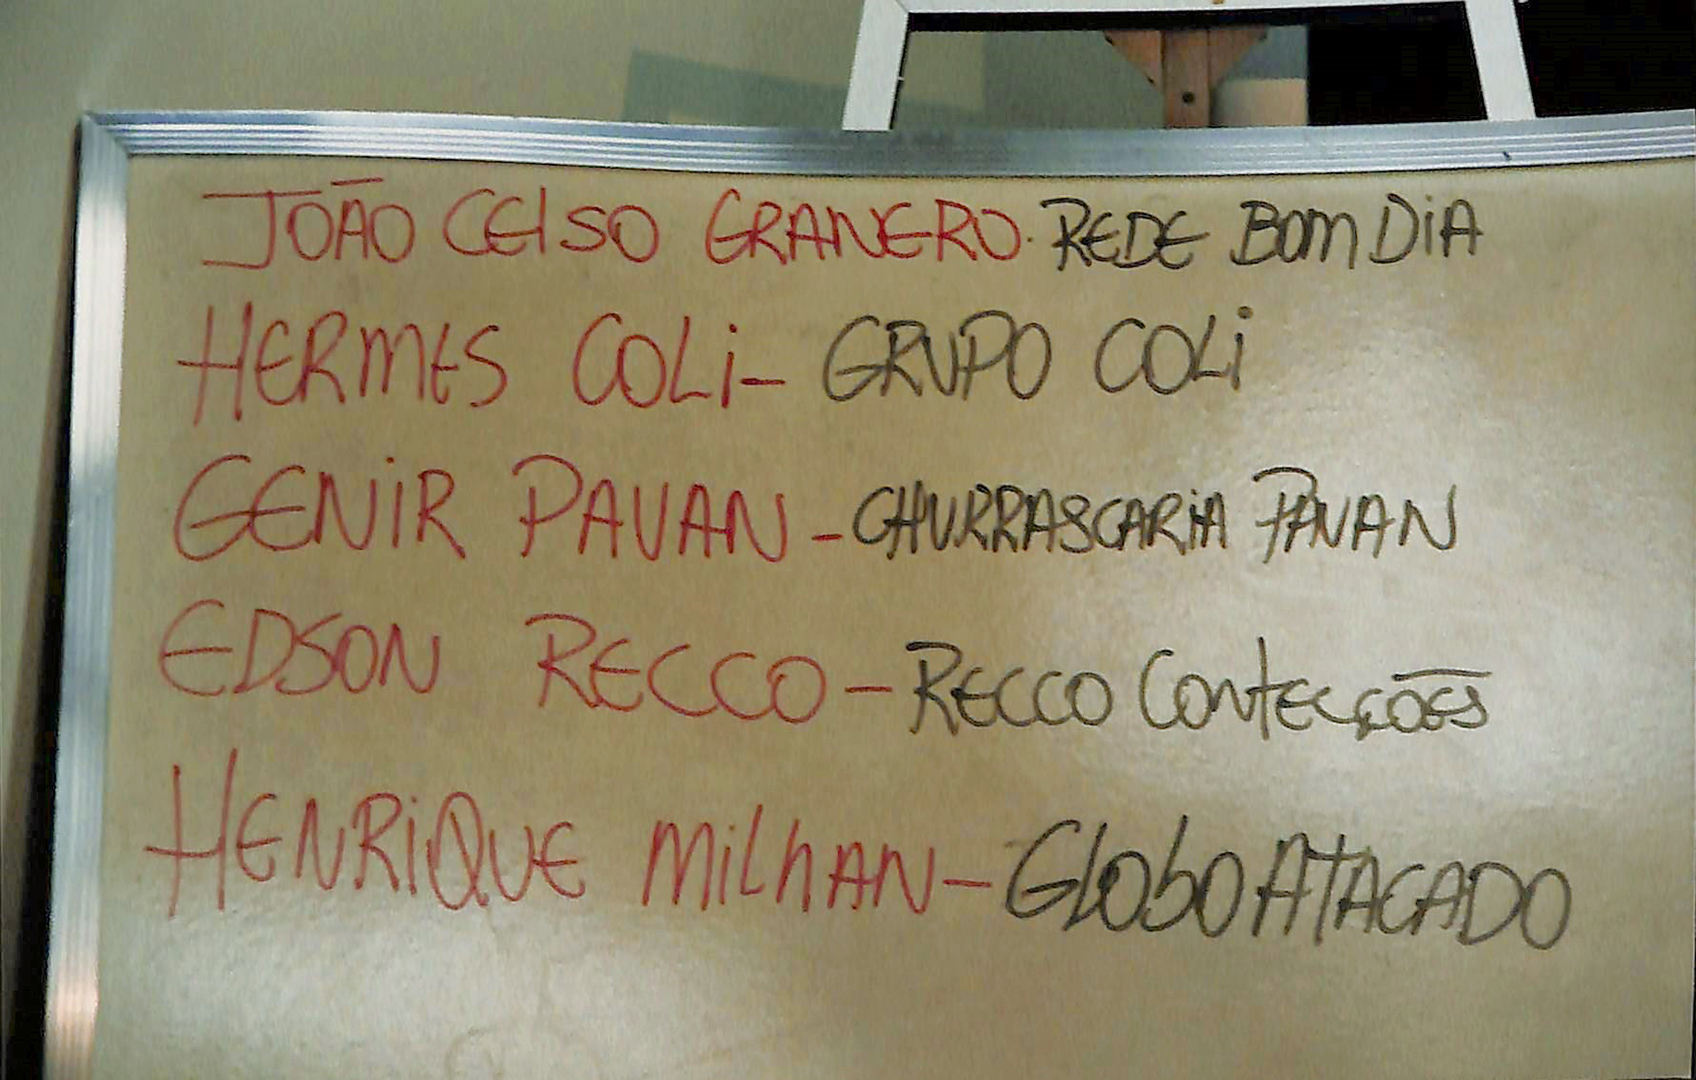 JOÃO CELSO GRANERO. REDE BOM DIA
HERMES COLI - GRUPO COLI
GENIR PAVAN - CHURRASCARIA PAVAN
EDSON RECCO - RECCO CONFECÇÕES
HENRIQUE MILHAN - GLOBO ATACADO